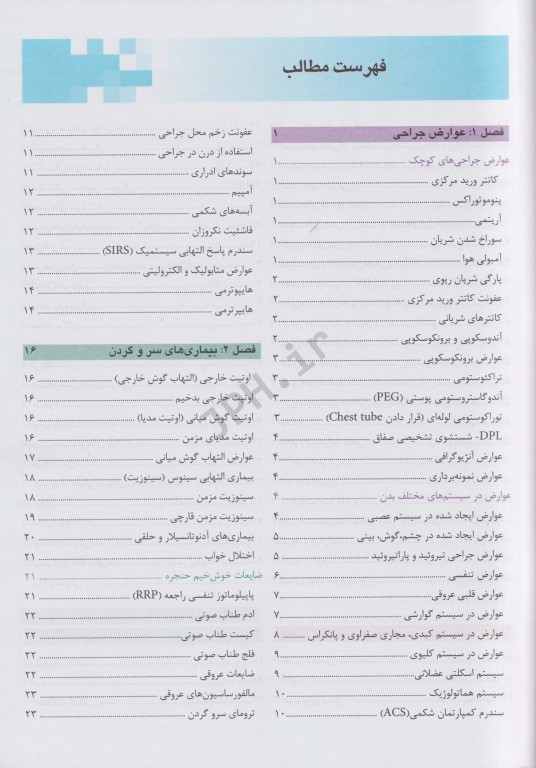 فهرست مطالب
فصل ۱: عوارض جراحی ۱
عوارض جراحی‌های کوچک ۱
کاتتر ورید مرکزی ۱
پنوموتوراکس ۱
آریتمی ۱
سوراخ شدن شریان ۱
آمبولی هوا ۱
پارگی شریان ریوی ۲
عفونت کاتتر ورید مرکزی ۲
کاتترهای شریانی ۲
آندوسکوپی و برونکوسکوپی ۲
عوارض برونکوسکوپی ۳
تراکئوستومی ۳
آندوگاستروستومی پوستی (PEG) ۳
توراکوستومی لوله‌ای (قرار دادن Chest tube) ۳
DPL- شستشوی تشخیصی صفاق ۴
عوارض آنژیوگرافی ۴
عوارض نمونه‌برداری ۴
عوارض در سیستم‌های مختلف بدن ۴
عوارض ایجاد شده در سیستم عصبی ۴
عوارض ایجاد شده در چشم،گوش، بینی ۵
عوارض جراحی تیروئید و پاراتیروئید ۵
عوارض تنفسی ۶
عوارض قلبی عروقی ۷
عوارض در سیستم گوارشی ۷
عوارض در سیستم کبدی، مجاری صفراوی و پانکراس ۸
عوارض در سیستم کلیوی ۹
سیستم اسکلتی عضلانی ۹
سیستم هماتولوژیک ۱۰
سندرم کمپارتمان شکمی(ACS) ۱۰
عفونت زخم محل جراحی ۱۱
استفاده از درن در جراحی ۱۱
سوندهای ادراری ۱۱
آمپیم ۱۲
آبسه‌های شکمی ۱۲
فاشئیت نکروزان ۱۲
سندرم پاسخ التهابی سیستمیک (SIRS) ۱۳
عوارض متابولیک و الکترولیتی ۱۳
هایپوترمی ۱۴
هایپرترمی ۱۴
فصل ۲: بیماری‌های سر و گردن ۱۶
اوتیت خارجی (التهاب گوش خارجی) ۱۶
اوتیت خارجی بدخیم ۱۶
اوتیت گوش میانی (اوتیت مدیا) ۱۶
اوتیت مدیای مزمن ۱۶
عوارض التهاب گوش میانی ۱۷
بیماری التهابی سینوس (سینوزیت) ۱۸
سینوزیت مزمن ۱۸
سینوزیت مزمن قارچی ۱۹
بیماری‌های آدنوتانسیلار و حلقی ۲۰
اختلال خواب ۲۱
ضایعات خوش‌خیم حنجره ۲۱
پاپیلوماتوز تنفسی راجعه (RRP) ۲۱
ادم طناب صوتی ۲۲
کیست طناب صوتی ۲۲
فلج طناب صوتی ۲۲
ضایعات عروقی ۲۲
مالفورساسیون‌های عروقی ۲۳
ترومای سرو گردن ۲۳
JPH.ir